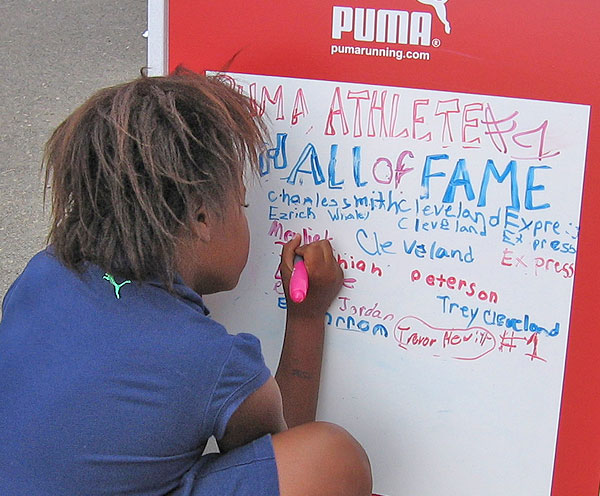 PUMA®
pumarunning.com
PUMA ATHLETE
HALL of FAME
Charles smith Cleveland Express
Ezrich Whaley Cleveland Express
Cleveland Express
paterson
Jordan Trey Cleveland
Trevor Hewitt #1